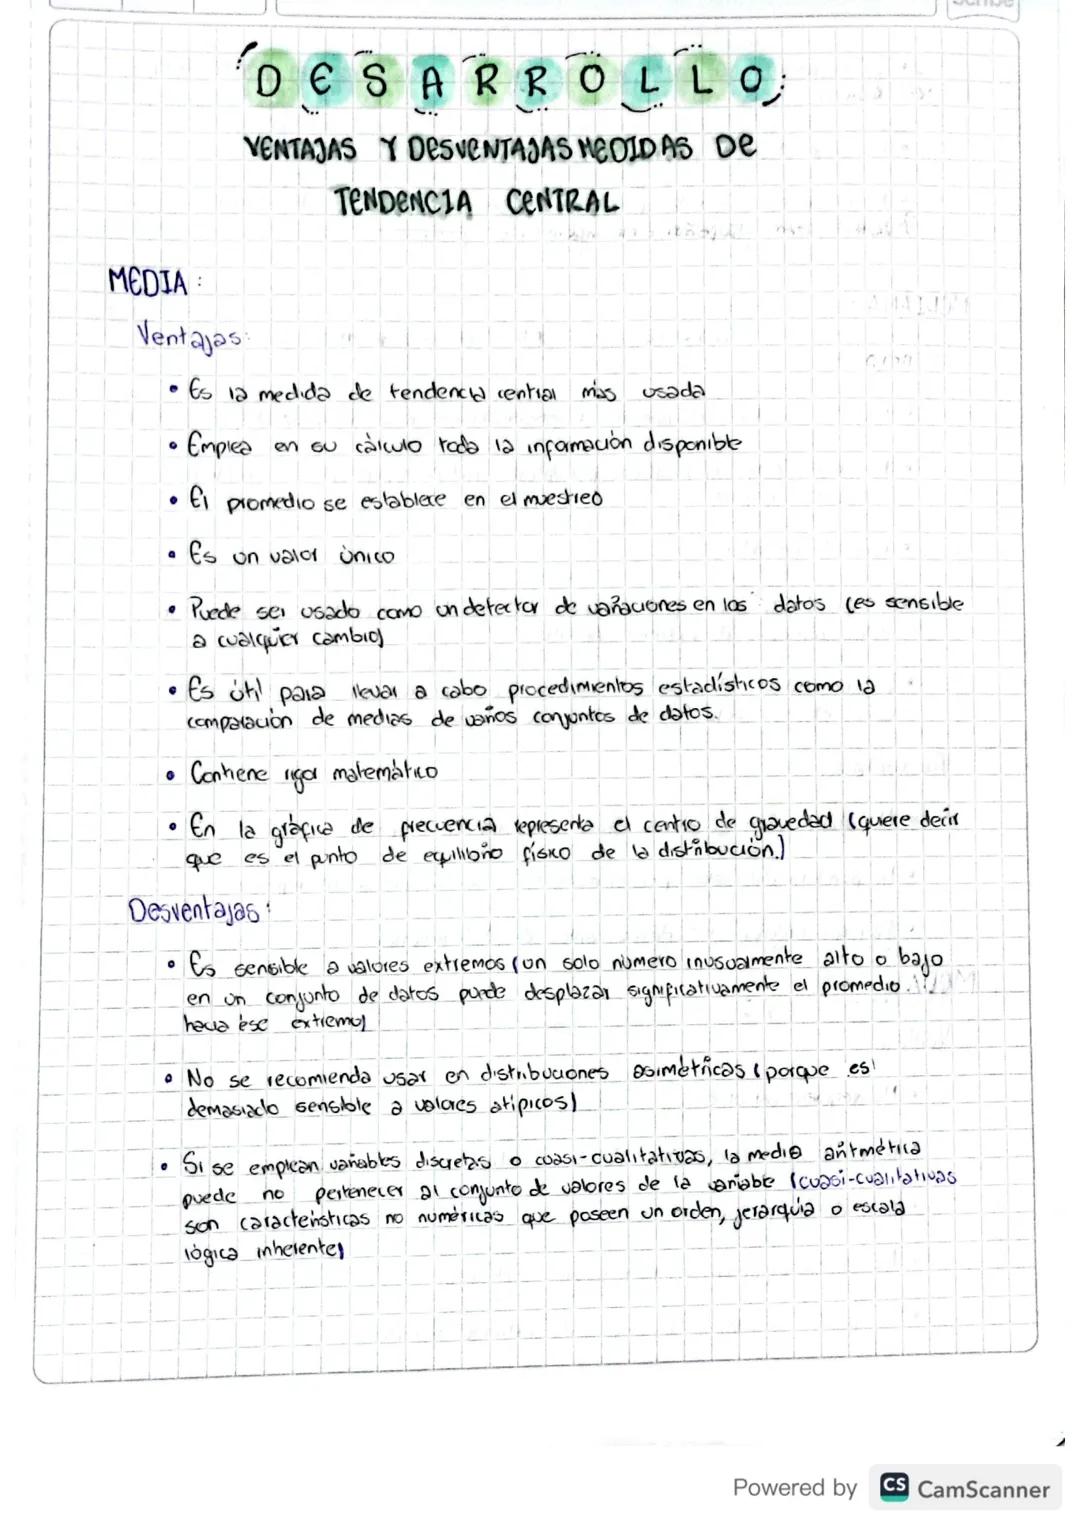 DESARROLLO
VENTAJAS Y DESVENTAJAS MEDIDAS DE
TENDENCIA CENTRAL
MEDIA:
Ventajas:
• Es la medida de tendencia central más usada
• Emplea en su cálculo toda la información disponible
• El promedio se establece en el muestreo
• Es un valor único
• Puede ser usado como un detector de variaciones en los datos (es sensible
a cualquier cambio)
• Es útil para llevar a cabo procedimientos estadísticos como la
comparación de medias de varios conjuntos de datos.
• Contiene rigor matemático
• En la gráfica de frecuencia representa el centro de gravedad (quiere decir
que es el punto de equilibrio físico de la distribución.)
Desventajas:
• Es sensible a valores extremos (un solo número inusualmente alto o bajo
en un conjunto de datos puede desplazar significativamente el promedio
hacia ese extremo)
• No se recomienda usar en distribuciones asimétricas (porque es
demasiado sensible a valores atípicos)
• Si se emplean variables discretas o cuasi-cualitativas, la media aritmética
puede no pertenecer al conjunto de valores de la variable (cuasi-cualitativas
son características no numéricas que poseen un orden, jerarquía o escala
lógica inherente)
Powered by CS CamScanner